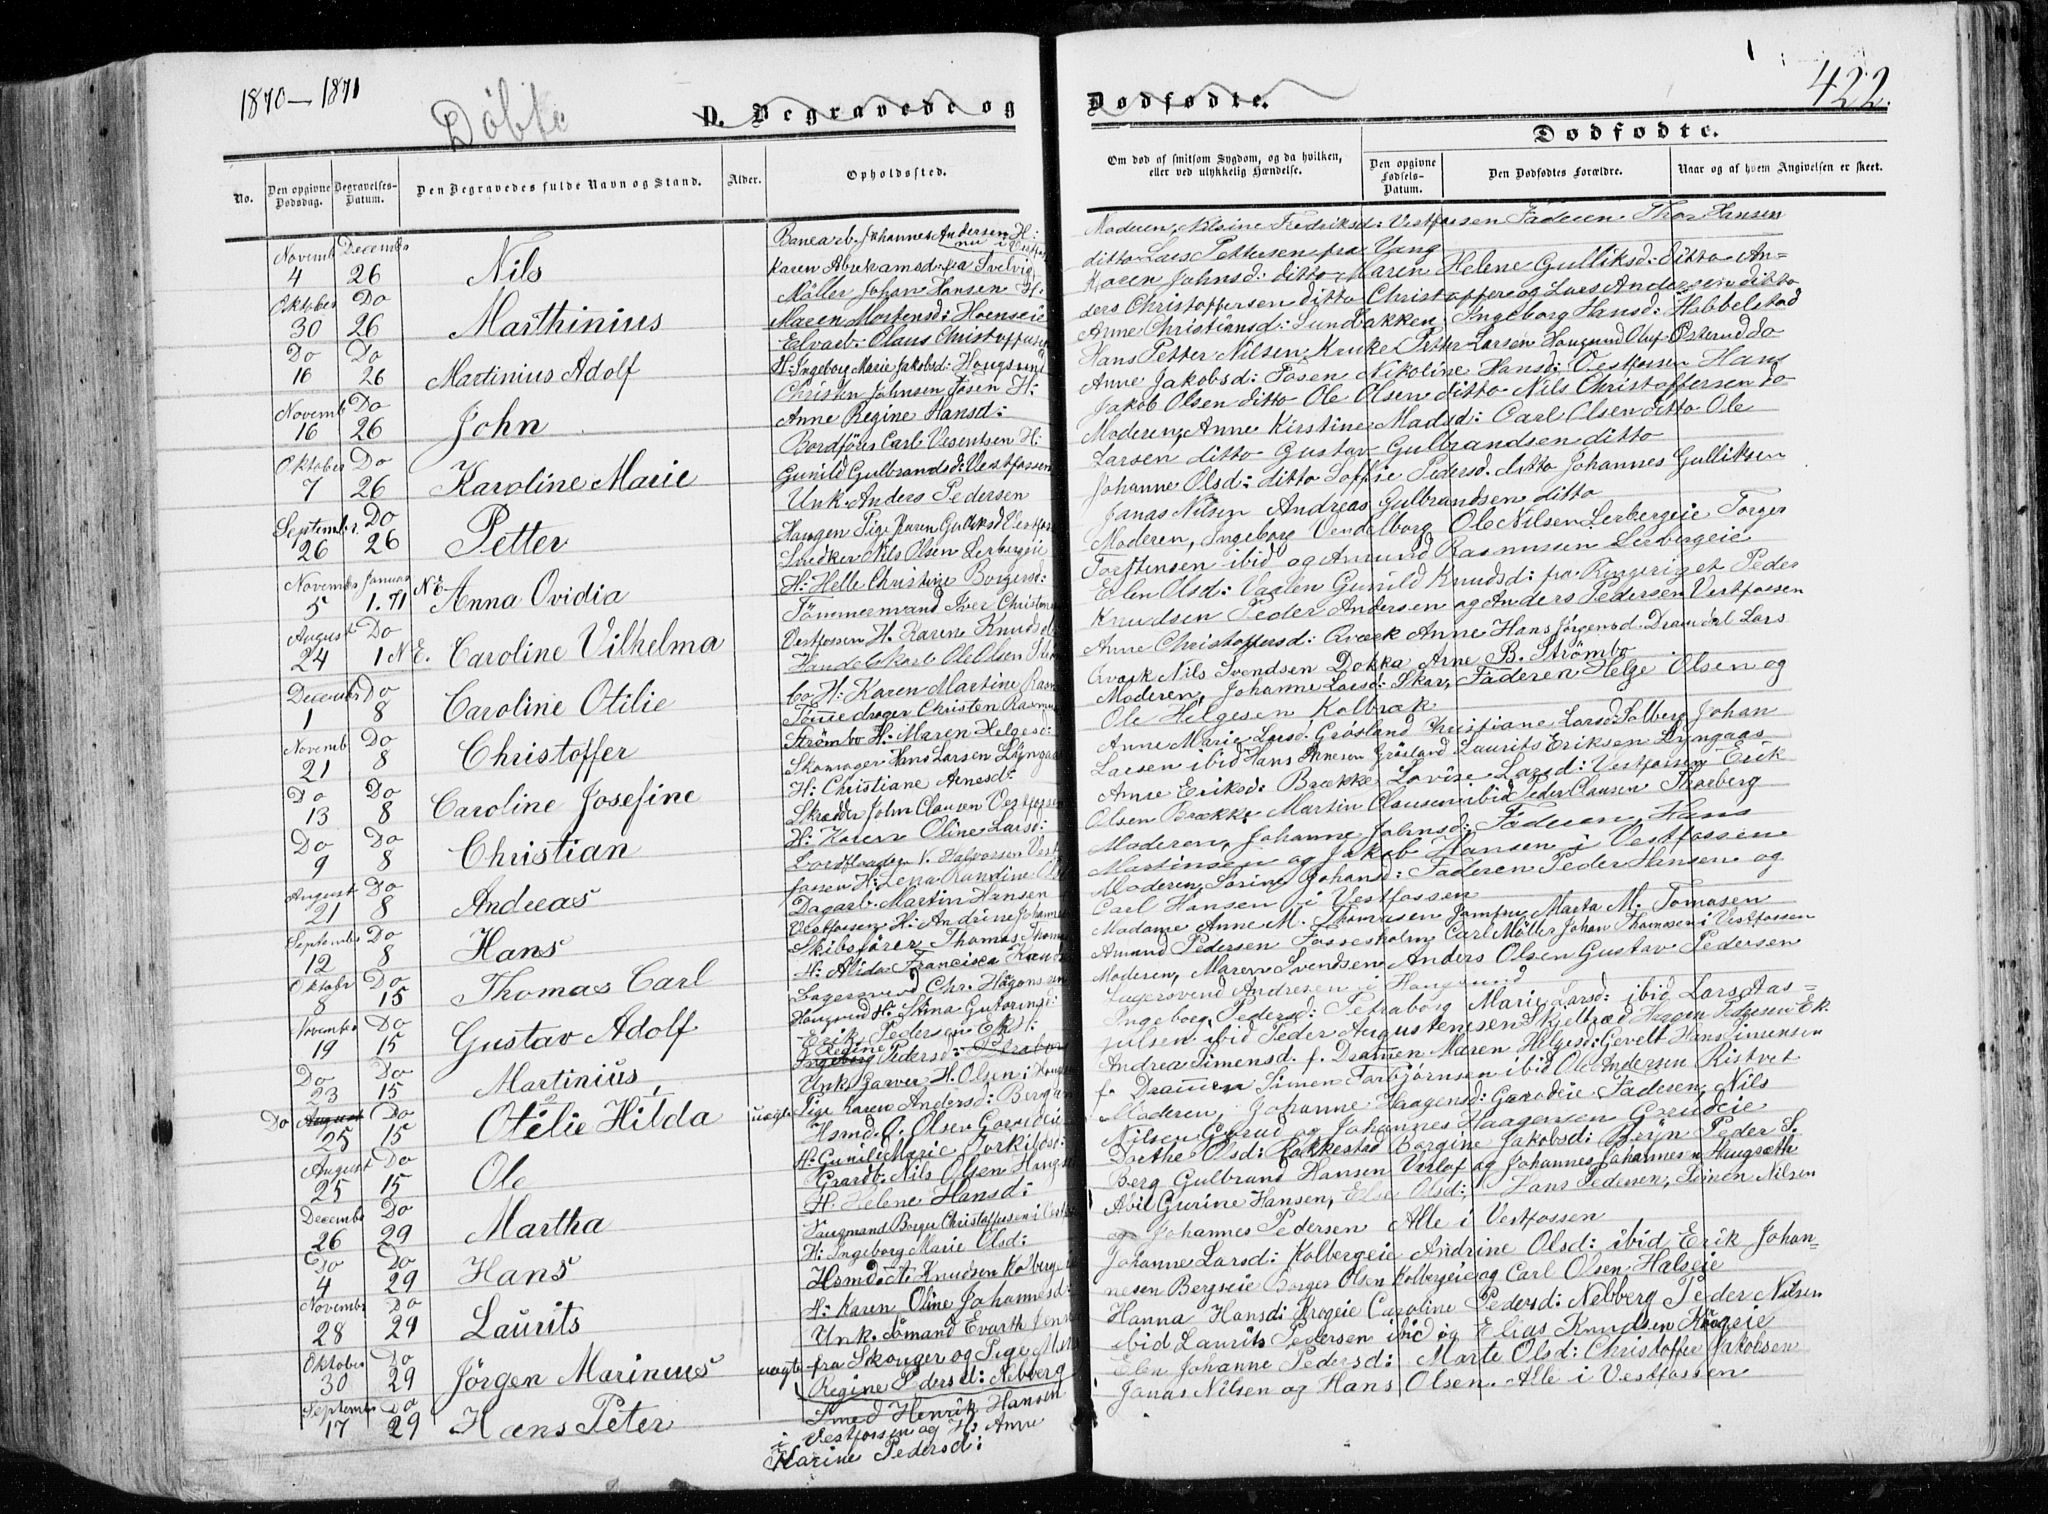 1870–1871
Døbte
D. Begravede og
Dødfødte.
422.
No.
Den opgivne Dødsdag.
Begravelses-Datum.
Den Begravedes fulde Navn og Stand.
Alder.
Opholdssted.
Om død af smitsom Sygdom, og da hvilken,
eller ved ulykkelig Hændelse.
Dødfødte.
Den opgivne Fødsels-Datum.
Den Dødfødtes Forældre.
Naar og af hvem Angivelsen er skeet.
Novemb Decembr
4 26 Nils
Oktober Do
30 26 Marthinius
Do Do
16 26 Martinius Adolf
Novemb Do
16 26 John
Oktober Do
7 26 Karoline Marie
Septembr. Do
26 26 Petter
Novembr Januar N.E.
5 1.71 Anna Ovidia
August Do
24 1 N.E. Caroline Vilhelma
December Do
1 8 Caroline Otilie
Novemb Do
21 8 Christoffer
Do Do
13 8 Caroline Josefine
Do Do
9 8 Christian
August Do
21 8 Andreas
September Do
12 8 Hans
Oktobr Do
8 15 Thomas Carl
November Do
19 15 Gustav Adolf
Do Do
23 15 Martinius
Do August Do
25 15 Otilie Hilda uægte
August Do
25 15 Ole
Decembr Do
26 29 Martha
Do Do
4 29 Hans
Novembr Do
28 29 Laurits
Oktober Do
30 29 Jörgen Marinius uægte
Septembr Do
17 29 Hans Peter
Johannes Andersen H:
nu i Vestfos
Karen Abrahamsd: fra Svelvig
Möller Johan Hansen H.
Maren Mortensd: Hoenseie
Olaus Christoffersen
H: Ingeborg Marie Jakobsd: Hougsund
Christen Johnsen Josen H:
Anne Regine Hansd:
Carl Vesentsen H:
Gunild Gulbrandsd: Vestfossen
Unk. Anders Pedersen
Haugen Pige Karen Gulliksd Vestfos
Snedker Nils Olsen Lerbergeie
H: Helle Christine Borgersd:
Tömmermand Iver Christens
Vestfossen H. Karen Knudsd
Handelskarl Ole Olsen
H: Karen Martine
Christen Rasmus
Strömbo H: Maren Helgesd:
Skomager Hans Larsen Lyngaas
H: Christiane Arnesd:
Skrædder John Clausen Vestfossen
H: Karen Oline Larsd:
Halvorsen Vest
fossen H: Lena Randine
Dagarb. Martin Hansen
Vestfossen H: Andrine Johannes
Skibsförer Thomas Thom
H: Alida Francisca
Lagersvend Chr. Hagensen
Hougsund H: Stina Gutormsd:
Erik Pedersen H:
Regine
Ingeborg Pedersd: Petraborg
Unk Garver H. Olsen i Hougs
Pige Karen Andersd: Bergan
Hsmd. O. Olsen Garudeie
H: Gunild Marie Torkilds:
Grardb: Nils Olsen Haugs
H: Helene Hansd:
Laugmand Borger Christoffersen i Vestf
H: Ingeborg Marie Olsd:
Knudsen Kolbergeie
H: Karen Oline Johannesd:
Unk. Sömand Evarth Jens
fra Skouger og Pige
Regine Pedersd: Nebberg
Smed Henrik Hansen
i Vestfossen og H: Anne
Karine Pedersd:
Moderen, Nilsine Fredriksd: Vestfossen Faderen Thor Hansen
ditto Lars Pettersen fra Yang
Karen Johnsd: ditto Maren Helene Gulliksd: ditto An-
ders Christoffersen ditto Christoffer og Lars Andersen ditto
Anne Christiansd: Sundbakken Ingeborg Hansd: Habbelstad
Hans Petter Nilsen Kruke Petter Larsen Hougsund Oluf Östensen do
Anne Jakobsd: Josen Nikoline Hansd: Vestfossen Hans
Jakob Olsen ditto Ole Olsen ditto Nils Christoffersen do
Moderen, Anne Kirstine Madsd: Carl Olsen ditto Ole
Larsen ditto Gustav Gulbrandsen ditto
Johanne Olsd: ditto Soffie Pedersd. ditto Johannes Gulliksen
Janas Nilsen Andreas Gulbrandsen ditto
Moderen, Ingeborg Vendelborg Ole Nilsen Lerbergeie Torger
Torstensen ibid og Amund Rasmussen Lerbergeie
Elen Olsd: Gunild Knudsd: fra Ringeriget Peder
Knudsen Peder Andersen og Anders Pedersen Vestfossen
Anne Christoffersd: Qværk Anne Hans Jörgensd. Lars
Qværk Nils Svendsen Dokka Arne B. Strömbo
Moderen, Johanne Larsd: Skar, Faderen Helge Olsen og
Ole Helgesen Kolbræk
Anne Marie Larsd: Gröstand Christiane Larsd: Solberg Johan
Larsen ibid Hans Arnesen Gröstand Laurits Eriksen Lyngaas
Anne Eriksd: Brække Lovise Larsd: Vestfossen Erik
Olsen Brække Martin Clausen ibid Peder Clausen Thorberg
Moderen, Johanne Johnsd: Faderen, Hans
Martinsen og Jakob Hansen i Vestfossen
Moderen, Sorine Johansd: Faderen Peder Hansen og
Carl Hansen i Vestfossen
Madame Anne M. Thomasen Jomfru Marta M. Tomasen
Amund Pedersen Fossesholm Carl Möller Johan Thomasen i Vestfossen
Moderen, Maren Svendsen Anders Olsen Gustav Pedersen
Lagersvend Andresen i Hougsund
Ingeborg Pedersd: Petraborg Marie Larsd: ibid Lars Aas-
julsen ibid Peder Augustensen Skjelbræd Haagen Pedersen Ek.
Andrea Simensd. f. Dramen Maren Helgesd: Gevelt Hans Simensen
f. Dramen Simen Torbjörnsen ibid Ole Andersen Ristvet
Moderen, Johanne Haagensd: Garudeie Faderen, Nils
Nilsen Garud og Johannes Haagensen Garudeie
Dorthe Olsd: Rakkestad Borgine Jakobsd: Peder S.
Berg Gulbrand Hansen Verlof og Johannes Johannesen Haugsæth
Avil Gurine Hansen, Else Olsd: Hans Pedersen, Simen Nilsen
og Johannes Pedersen Alle i Vestfossen
Johannes Larsd: Kolbergeie Andrine Olsd: ibid Erik Johan-
nesen Bergseie Borger Olsen Kolbergeie og Carl Olsen Halseie
Hanna Hansd: Krogeie Caroline Pedersd: Nebberg Peder Nilsen
ibid Laurits Pedersen ibid og Elias Knudsen Krogeie
Elen Johanne Pedersd: Marte Olsd: Christoffer Jakobsen
Janas Nilsen og Hans Olsen. Alle i Vestfossen